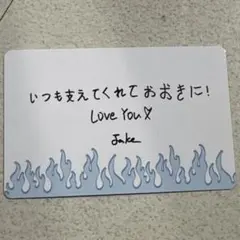 いつも支えてくれておおきに!
Love You♡
Jake